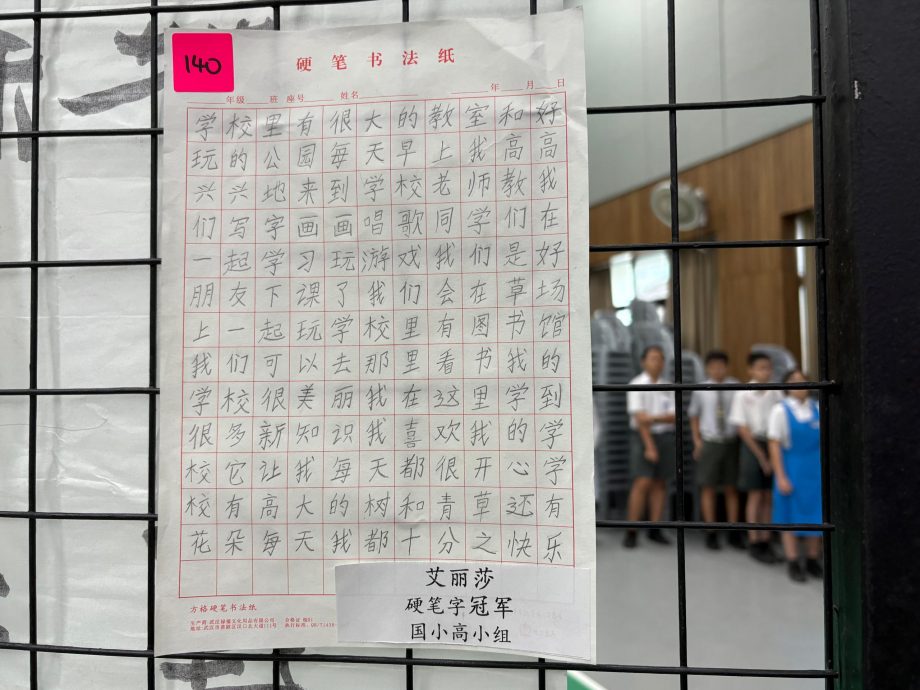 140
硬笔书法纸
年级 班 座号 姓名 年 月 日
学校里有很大的教室和好
玩的公园每天早上我高高
兴兴地来到学校老师教我
们写字画画唱歌同学们在
一起学习玩游戏我们是好
朋友下课了我们会在草场
上一起玩学校里有图书馆
我们可以去那里看书我的
学校很美丽我在这里学到
很多新知识我喜欢我的学
校它让我每天都很开心学
校有高大的树和青草还有
花朵每天我都十分之快乐
方格硬笔书法纸
艾丽莎
硬笔字冠军
国小高小组